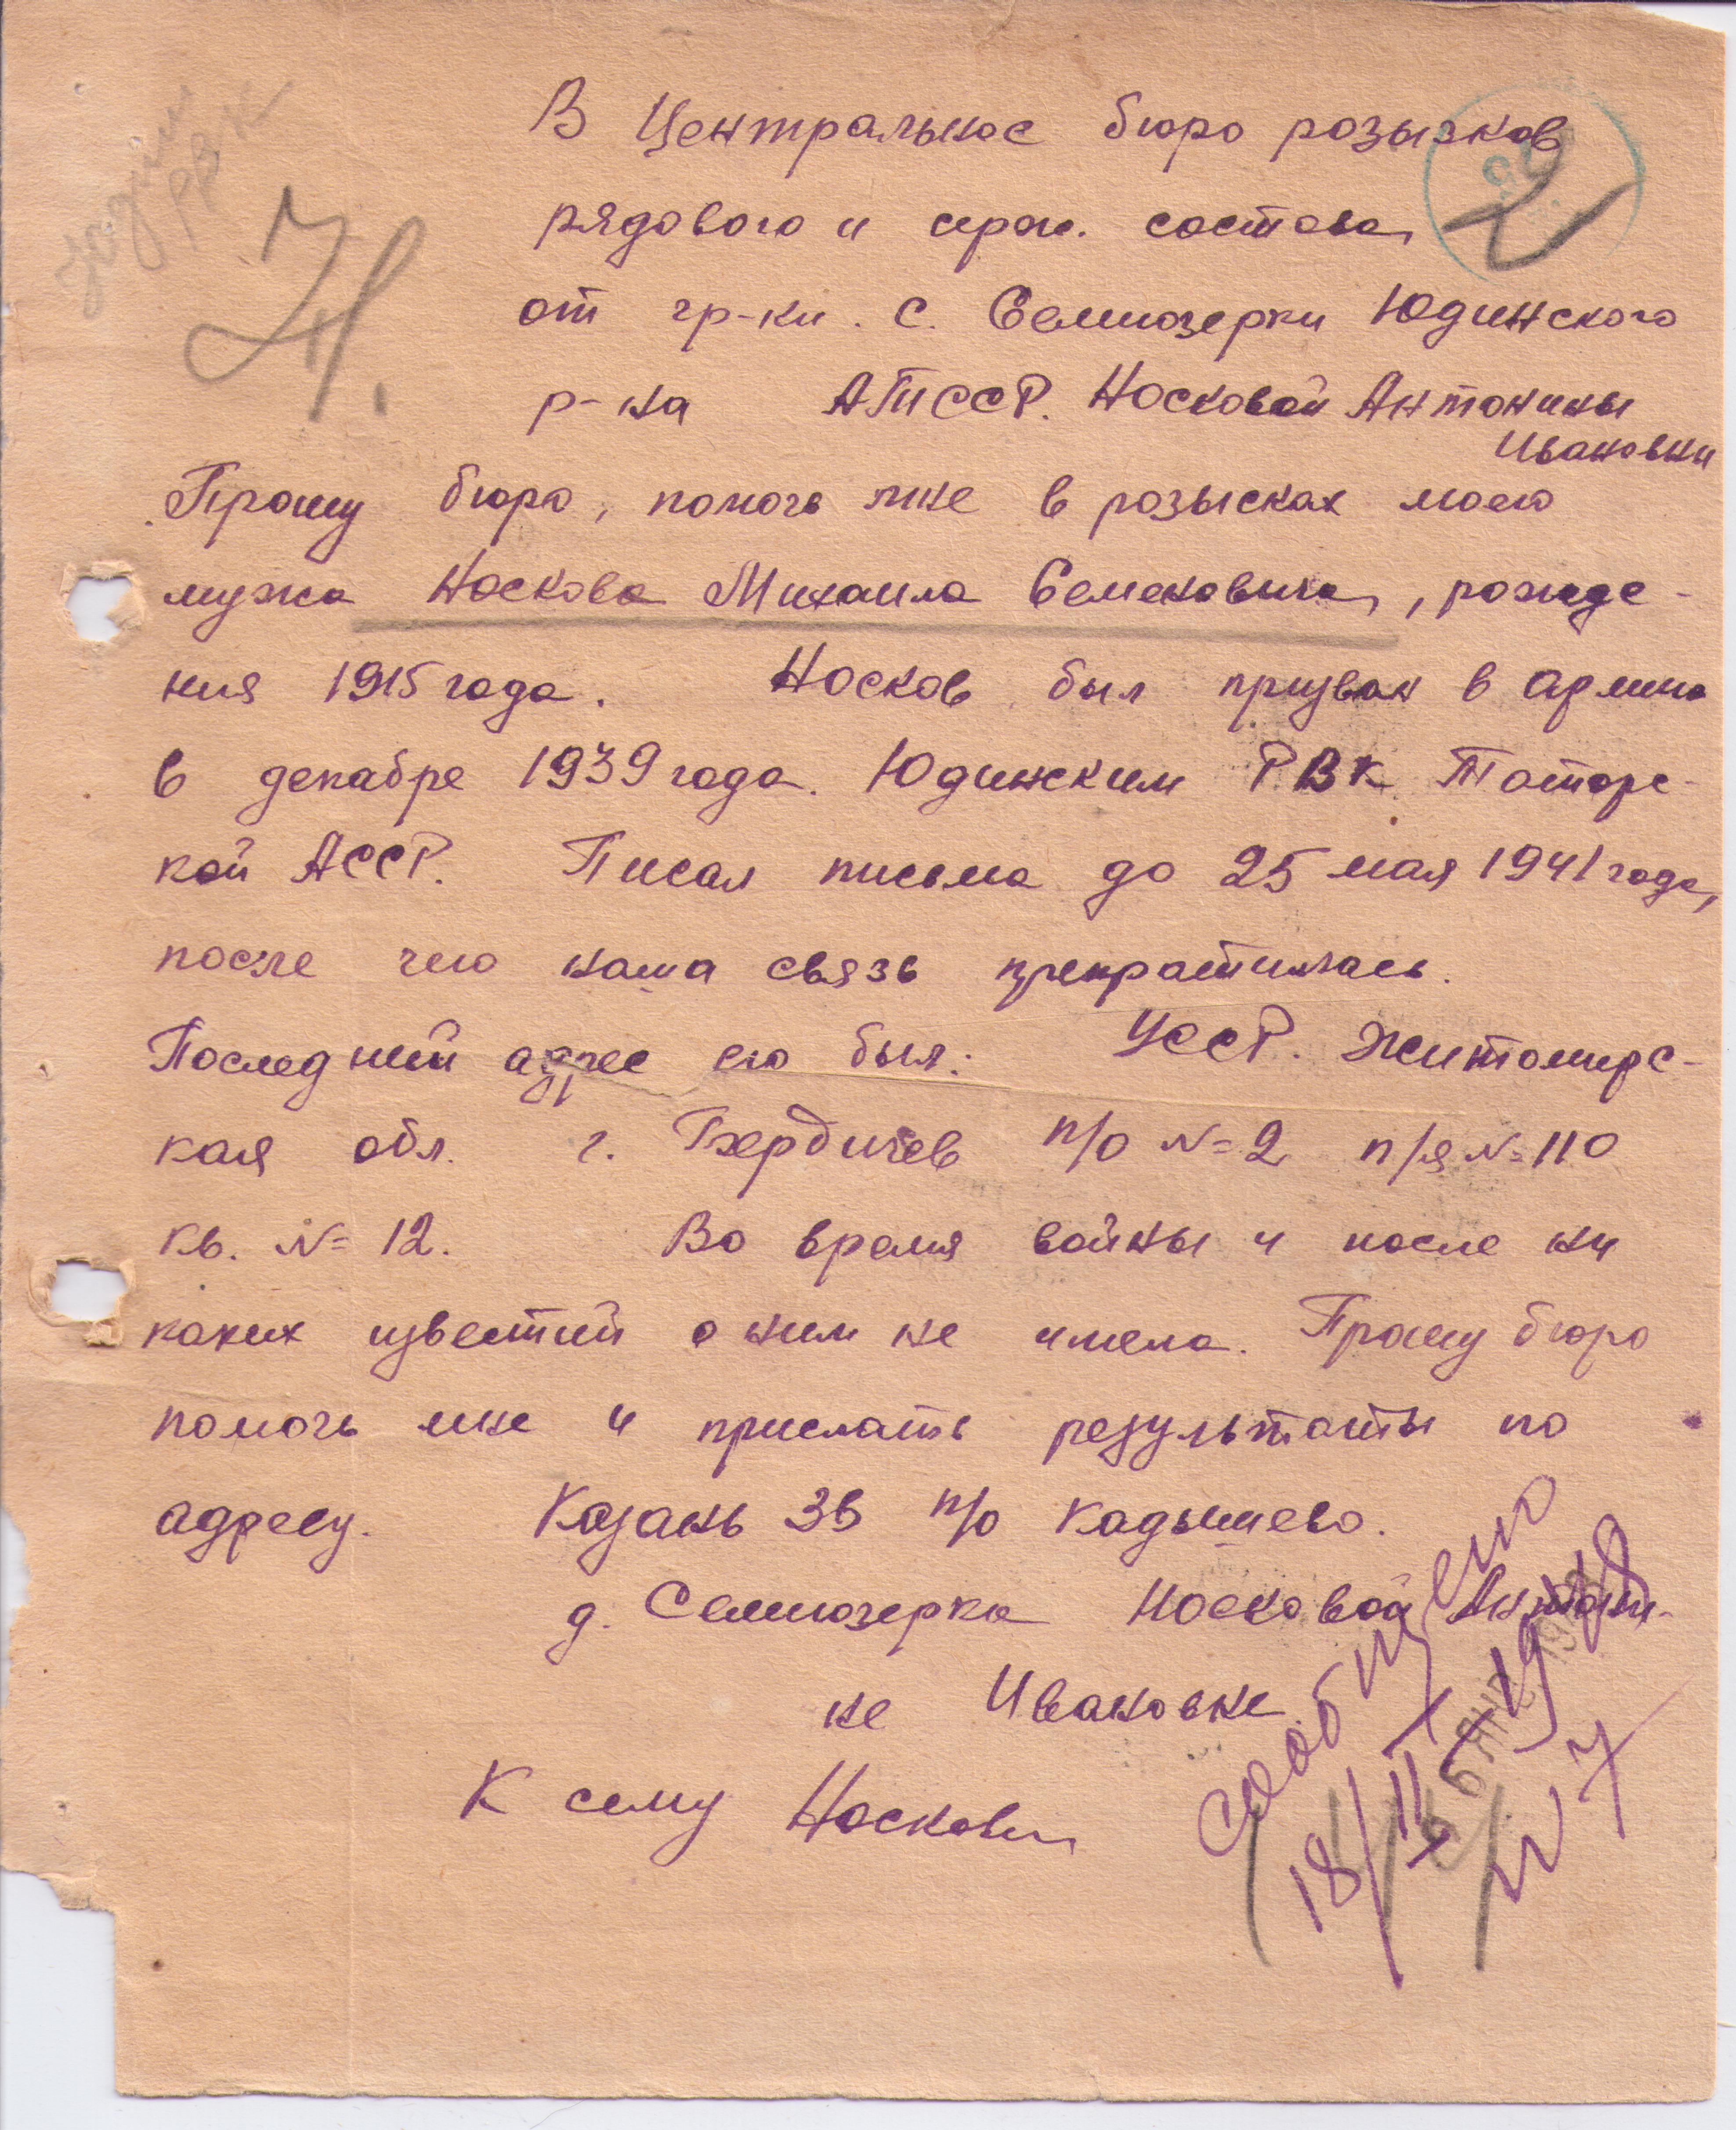 В Центральное бюро розысков
рядового и серж. состава
от гр-ки. с. Семиозерки Юдинского
р-на АТССР. Носковой Антонины
Ивановны
Прошу бюро, помочь мне в розысках моего
мужа Носкова Михаила Семеновича, рожде-
ния 1915 года. Носков был призван в армию
в декабре 1939 года. Юдинским РВК Татарс-
кой АССР. Писал письма до 25 мая 1941 года,
после чего наша связь прекратилась.
Последний адрес его был: УССР. Житомирс-
кая обл. г. Бердичев п/о №2 п/я №110
кв. № 12. Во время войны и после ни
каких известий о ним не имела. Прошу бюро
помочь мне и прислать результаты по
адресу. Казань 36 п/о Кадышево.
д. Семиозерка Носковой Антони-
не Ивановне.
К сему Носкова
сообщено
18/II-1948